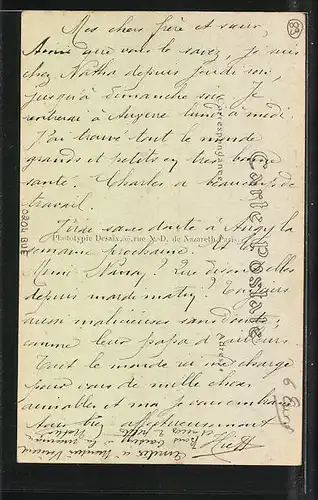 Mes chers frère et sœur,
comme vous le savez, je suis
chez Natha depuis jeudi soir,
jusqu'à dimanche soir. Je
rentrerai à lundi à midi.
J'ai trouvé tout le monde
grands et petits en très bonne
santé. Charles a beaucoup de
travail.
J'irai sans doute à la
semaine prochaine.
Mimi Que disent elles
depuis mardi matin? Toujours
aussi malicieuses sans doute,
comme leur papa d'ailleurs.
Tout le monde ici me charge
pour vous de mille choses
aimables et moi je vous embrasse
tous très affectueusement
Carte Postale
Correspondance
Adresse
Phototypie Desaix, rue N.-D. de Nazareth Paris
83